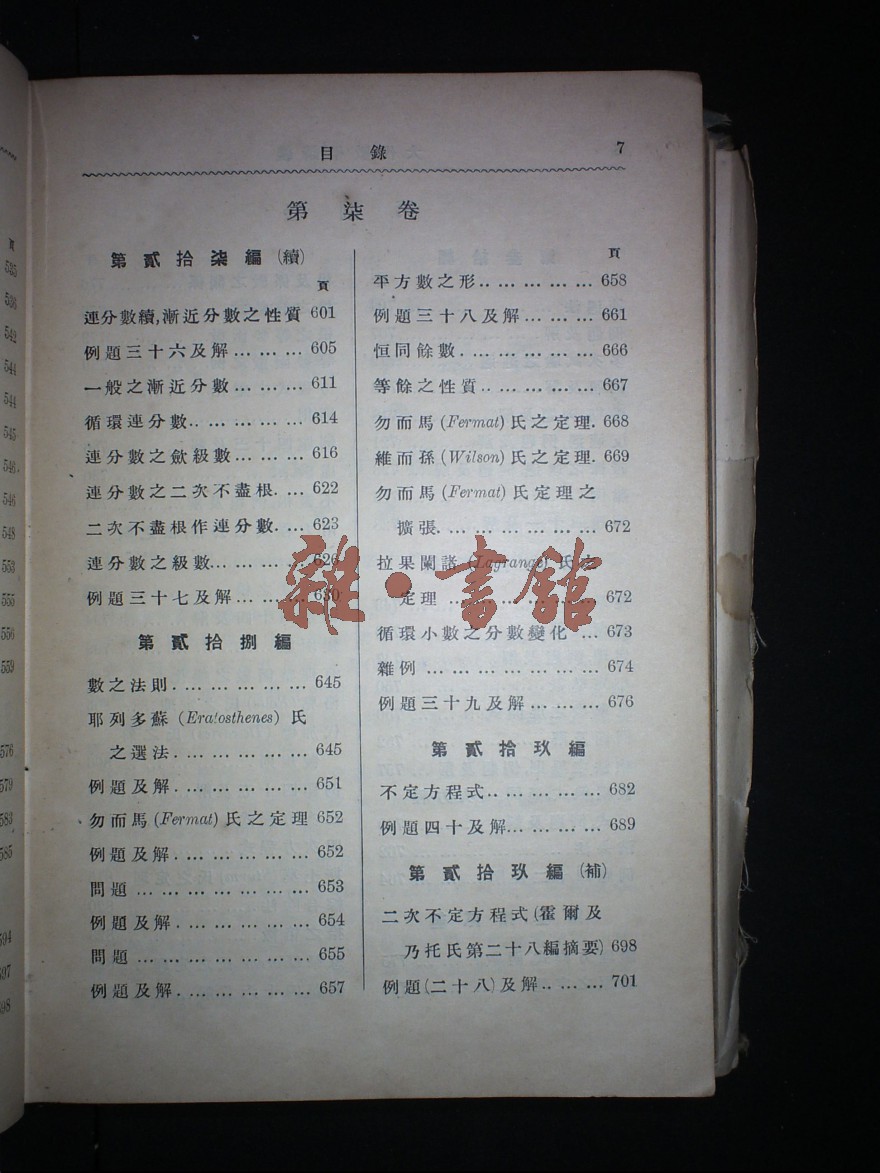 目錄 7
第柒卷
第貳拾柒編(續)
頁
連分數續,漸近分數之性質 601
例題三十六及解……… 605
一般之漸近分數……… 611
循環連分數………… 614
連分數之斂級數……… 616
連分數之二次不盡根…… 622
二次不盡根作連分數…… 623
連分數之級數……… 626
例題三十七及解……… 630
第貳拾捌編
數之法則……………… 645
耶列多蘇(Eratosthenes)氏
之選法……………… 645
例題及解……………… 651
勿而馬(Fermat)氏之定理 652
例題及解……………… 652
問題………………… 653
例題及解……………… 654
問題………………… 655
例題及解……………… 657
頁
平方數之形…………… 658
例題三十八及解……… 661
恒同餘數……………… 666
等餘之性質…………… 667
勿而馬(Fermat)氏之定理. 668
維而孫(Wilson)氏之定理. 669
勿而馬(Fermat)氏定理之
擴張………………… 672
拉果闌諸(Lagrange)氏之
定理………………… 672
循環小數之分數變化… 673
雜例………………… 674
例題三十九及解……… 676
第貳拾玖編
不定方程式…………… 682
例題四十及解………… 689
第貳拾玖編(補)
二次不定方程式(霍爾及
乃托氏第二十八編摘要) 698
例題(二十八)及解……… 701
雜·書館
頁
535
536
542
544
544
545
546
546
548
553
555
556
559
576
579
583
585